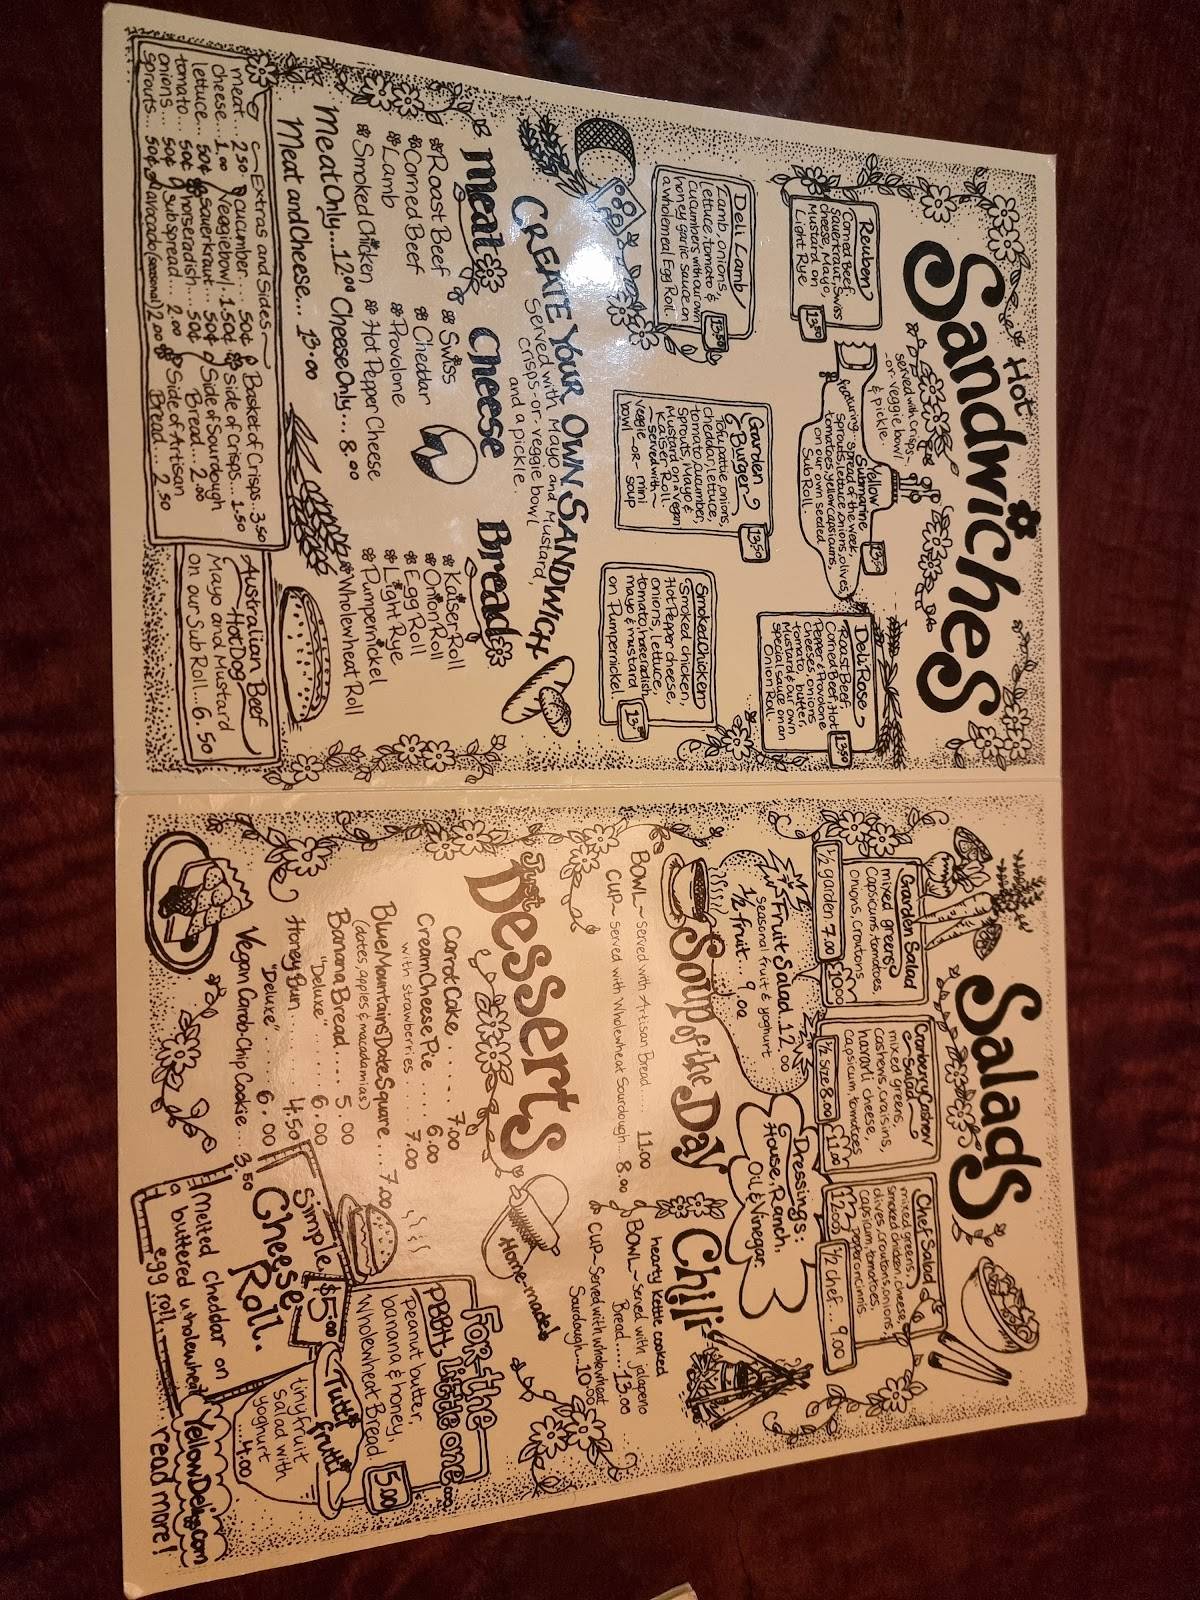 Hot
Sandwiches
served with crisps~
~or veggie bowl
& pickle.
Reuben
Corned Beef,
Sauerkraut, Swiss
cheese, Mayo,
Mustard on
Light Rye
13.50
Yellow
Submarine
featuring spread of the week,
sprouts, lettuce, onions, olives,
tomatoes, yellow capsicums,
on our own seeded
Sub Roll.
13.50
Deli Rose
Roast Beef
Corned Beef, Hot
Pepper & Provolone
Cheeses, onions
tomato, butter,
Mustard & our own
special sauce on an
Onion Roll.
13.50
Deli Lamb
Lamb, onions,
lettuce, tomato &
cucumbers with our own
honey garlic sauce on
a wholemeal Egg Roll.
13.50
Garden
Burger
Tofu pattie, onions,
cheddar, lettuce,
tomato, cucumber,
Sprouts, Mayo &
Mustard on a Vegan
Kaiser Roll.
~served with~
veggie ~OR~ mini
bowl soup
13.50
Smoked Chicken
Smoked chicken,
Hot Pepper cheese,
onions, lettuce,
tomato, horseradish,
mayo & mustard
on Pumpernickel
CREATE YOUR OWN SANDWICH
Served with Mayo and Mustard,
crisps -or- veggie bowl
and a pickle.
Meat
Roast Beef
Corned Beef
Lamb
Smoked Chicken
Cheese
Swiss
Cheddar
Provolone
Hot Pepper Cheese
Bread
Kaiser Roll
Onion Roll
Egg Roll
Light Rye
Pumpernickel
Wholewheat Roll
Meat Only... 12.00 Cheese Only... 8.00
Meat and Cheese... 13.00
Extras and Sides
meat... 2.50
cheese... 1.00
lettuce... 50¢
tomato... 50¢
onions... 50¢
sprouts... 50¢
cucumber... 50¢
Veggie bowl. 1.50
sauerkraut... 50¢
horseradish... 50¢
Sub spread... 2.00
Avocado (seasonal) 2.00
Basket of Crisps... 3.50
Side of Crisps... 1.50
Side of Sourdough
Bread... 2.00
Side of Artisan
Bread... 2.50
Australian Beef
Hot Dog
Mayo and Mustard
on our Sub Roll... 6.50
Salads
Garden Salad
mixed greens
Capsicums, tomatoes,
onions, croutons.
10.00
1/2 garden 7.00
Cranberry Cashew
Salad
mixed greens,
cashews, craisins,
havarti cheese,
capsicum, tomatoes
11.00
1/2 Size 8.00
Chef Salad
mixed greens
smoked chicken, cheese,
olives, croutons, onions,
capsicum, tomatoes,
pepperoncinis.
12.00
1/2 chef... 9.00
Fruit Salad. 12.00
seasonal fruit & yoghurt
1/2 fruit... 9.00
Dressings:
House, Ranch,
Oil & Vinegar.
Soup of the Day
BOWL~ served with Artisan Bread.... 11.00
CUP~ served with Wholewheat Sourdough... 8.00
Chili
hearty kettle cooked
BOWL~ served with jalapeno
Bread..... 13.00
CUP~ Served with wholewheat
Sourdough... 10.00
Just
Desserts
Home-made!
Carrot Cake..... 7.00
Cream Cheese Pie..... 6.00
with strawberries.... 7.00
Blue Mountains Date Square.... 7.00
(dates, apples & macadamias)
Banana Bread..... 5.00
"Deluxe"....... 6.00
Honey Bun..... 4.50
"Deluxe"....... 6.00
Vegan Carob-Chip Cookie... 3.50
For-the
little one...
PBBH
peanut butter,
banana & honey,
Wholewheat Bread
5.00
Tutti
frutti
tiny fruit
salad with
yoghurt
....4.00
Simple $5.00
Cheese
Roll.
Melted cheddar on
a buttered wholewheat
egg roll....
YellowDeli.com
read more!